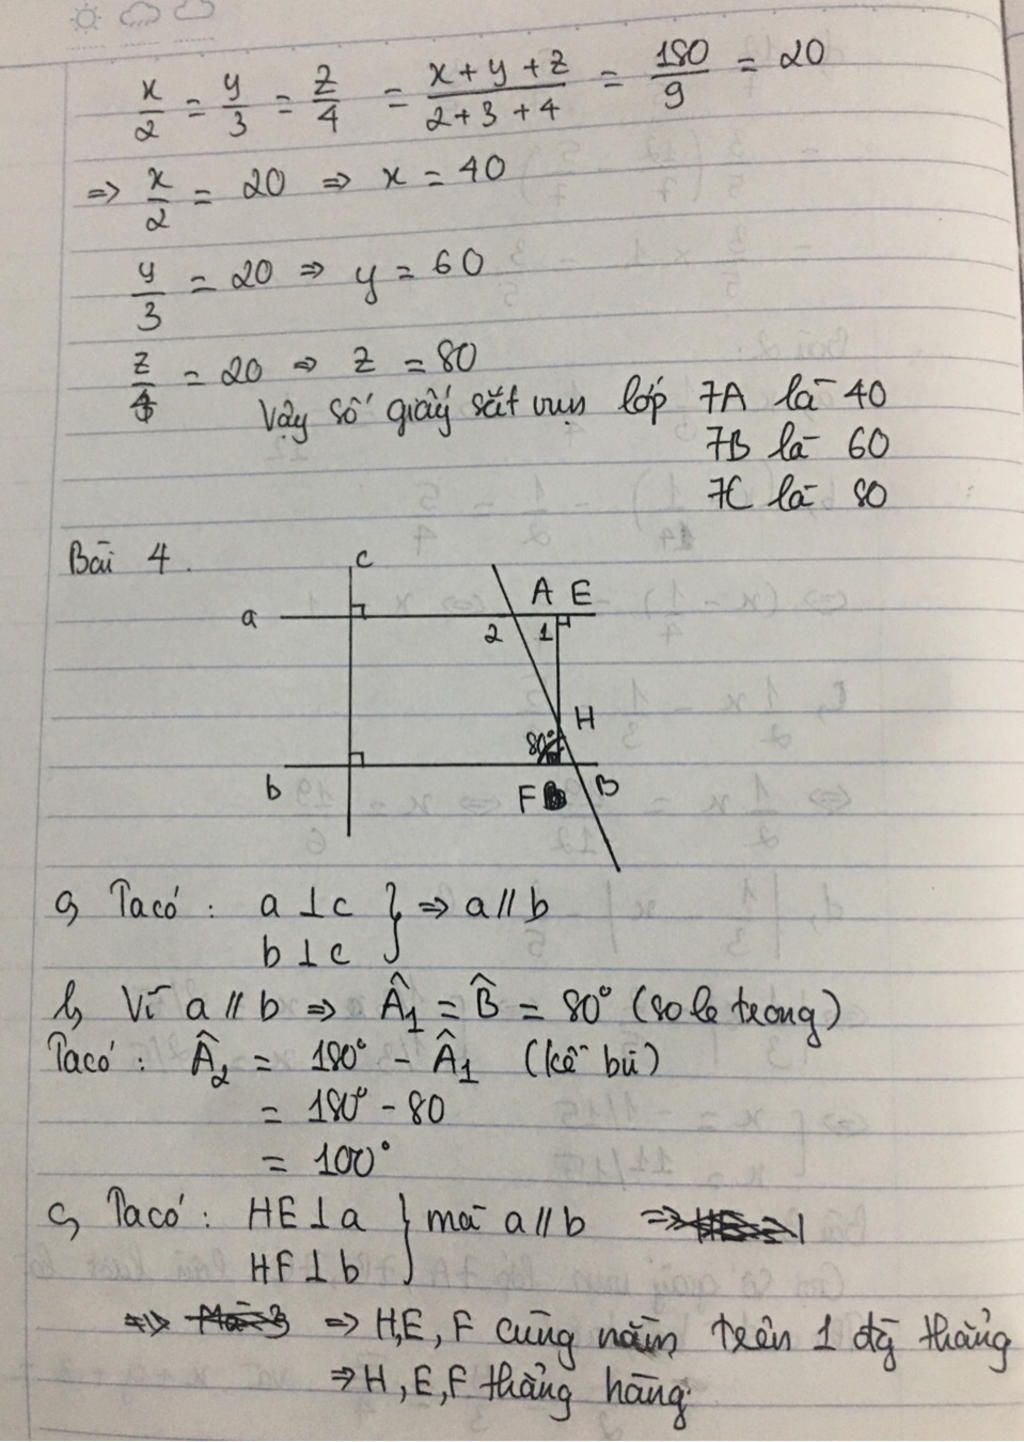 x/2 = y/3 = z/4 = (x+y+z)/(2+3+4) = 180/9 = 20
=> x/2 = 20 => x = 40
y/3 = 20 => y = 60
z/4 = 20 => z = 80
Vậy số giấy sắt vụn lớp 7A là 40
7B là 60
7C là 80
Bài 4.
c
A E
a
2 1
H
80°
b
F B
a, Ta có : a ⊥ c } => a // b
b ⊥ c
b, Vì a // b => Â₁ = B̂ = 80° (so le trong)
Ta có : Â₂ = 180° - Â₁ (kề bù)
= 180° - 80
= 100°
c, Ta có : HE ⊥ a } mà a // b
HF ⊥ b
=> H,E,F cùng nằm trên 1 đg thẳng
=> H,E,F thẳng hàng.